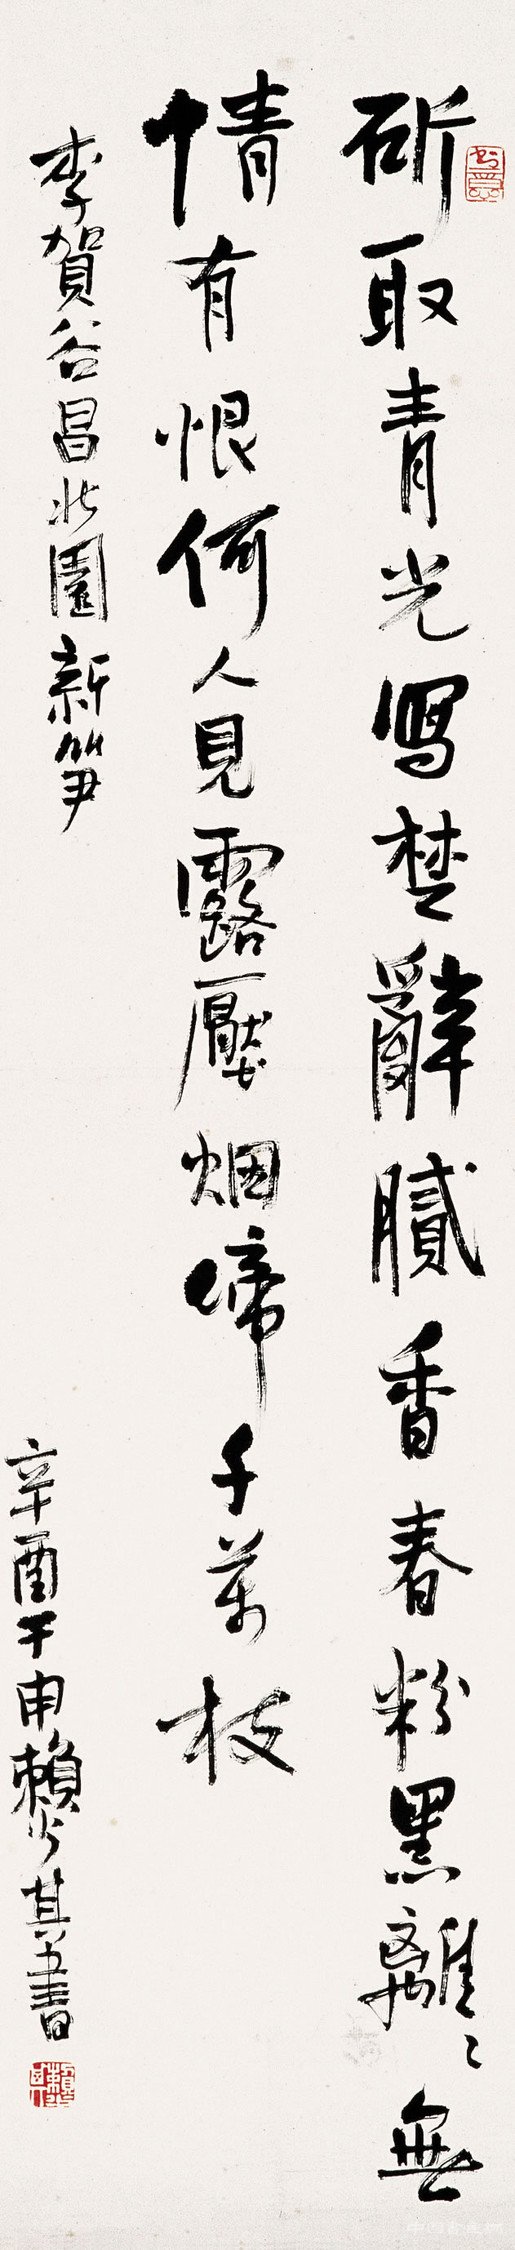 斫取青光寫楚辭膩香春粉黑離〻無
情有恨何人見露壓烟啼千萬枝
李賀谷昌北園新笋
辛酉于申賴少其書